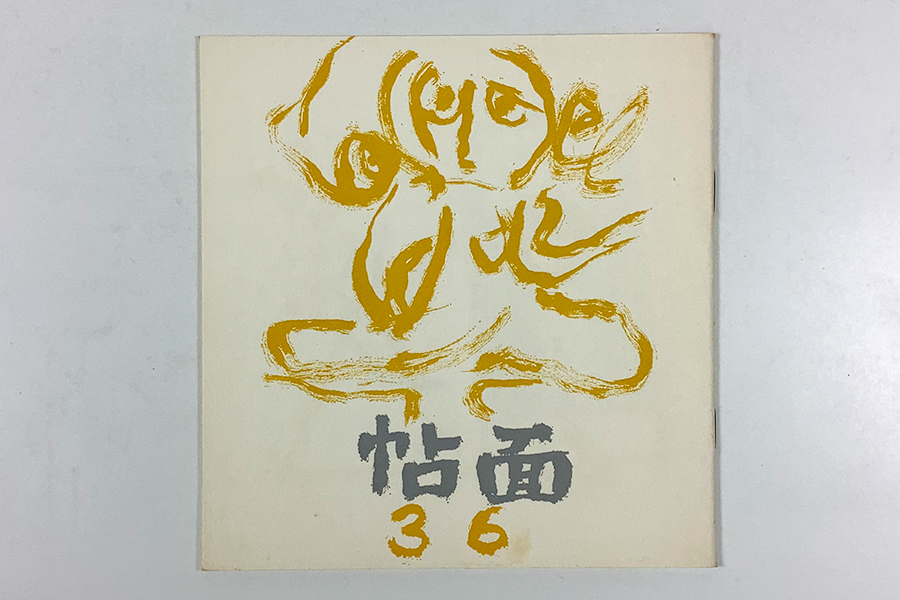 帖面
36